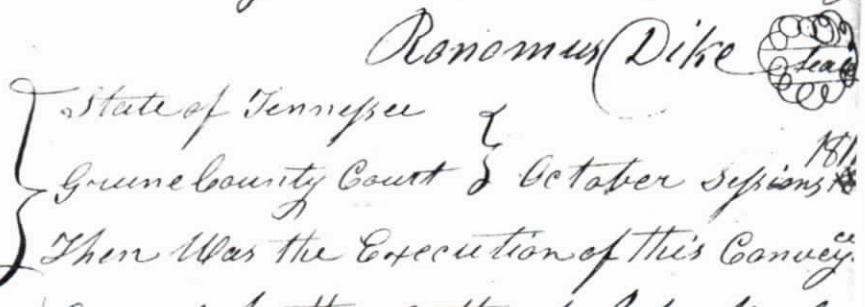 Ronomus Dike Seal
State of Tennessee
Greene County Court October Sessions 181
Then Was the Execution of this Convey.ce